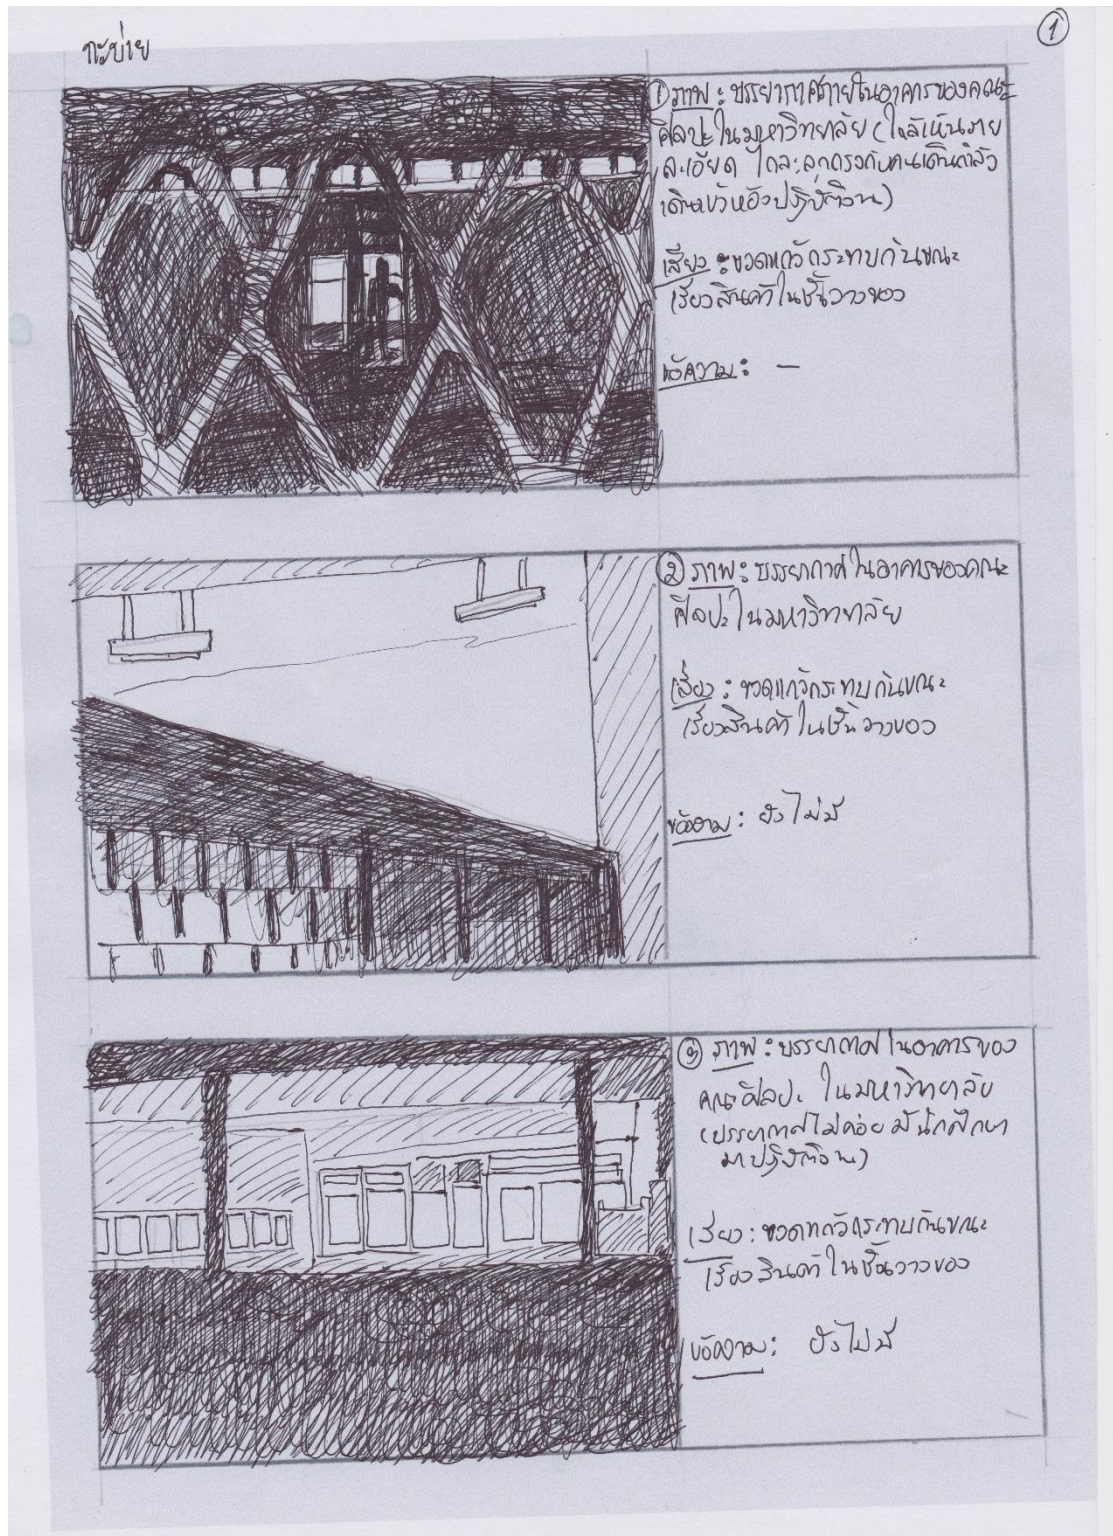 กะบ่าย
1
① ภาพ : บรรยากาศภายในอาคารของคณะ
ศิลปะในมหาวิทยาลัย (ใกล้เห็นราย
ละเอียด ตรงกับคนเดินกำลัง
เดินเข้าห้องปฏิบัติงาน)
เสียง : ขวดแก้วกระทบกันขณะ
เรียงสินค้าในชั้นวางของ
ข้อความ : –
② ภาพ : บรรยากาศในอาคารของคณะ
ศิลปะในมหาวิทยาลัย
เสียง : ขวดแก้วกระทบกันขณะ
เรียงสินค้าในชั้นวางของ
ข้อความ : ยังไม่มี
③ ภาพ : บรรยากาศในอาคารของ
คณะศิลปะ ในมหาวิทยาลัย
(บรรยากาศไม่ค่อยมีนักศึกษา
มาปฏิบัติงาน)
เสียง : ขวดแก้วกระทบกันขณะ
เรียงสินค้าในชั้นวางของ
ข้อความ : ยังไม่มี